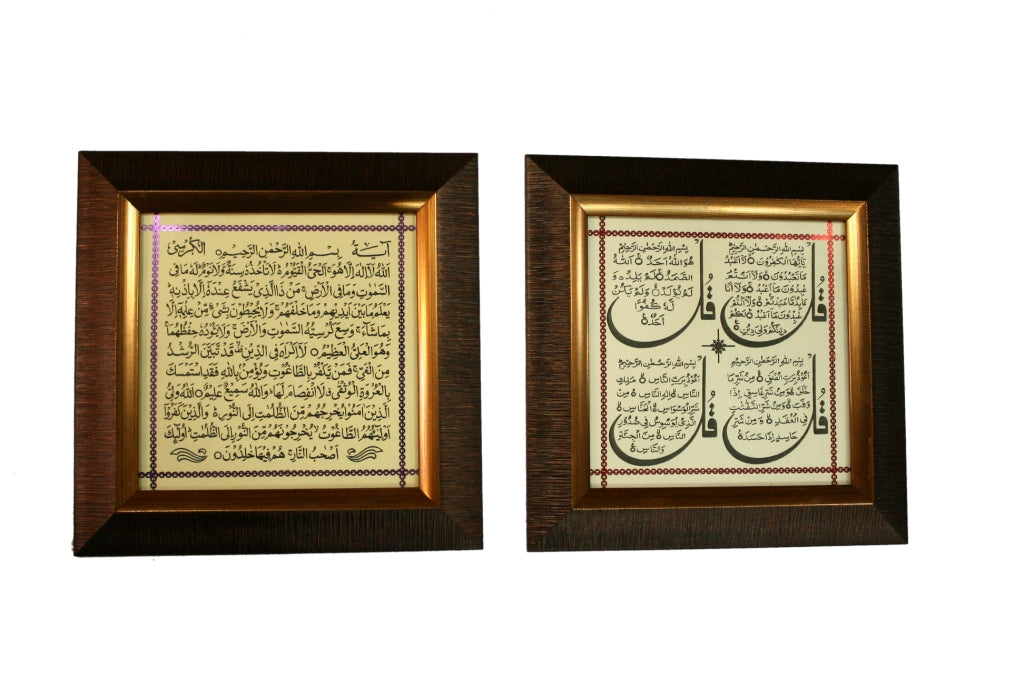 آية بسم الله الرحمن الرحيم الكرسي
الله لا اله الا هو الحي القيوم لا تاخذه سنة ولا نوم له ما في
السموت وما في الارض من ذا الذي يشفع عنده الا باذنه
يعلم ما بين ايديهم وما خلفهم ولا يحيطون بشيء من علمه الا
بما شاء وسع كرسيه السموت والارض ولا يؤده حفظهما
وهو العلي العظيم لا اكراه في الدين قد تبين الرشد
من الغي فمن يكفر بالطاغوت ويؤمن بالله فقد استمسك
بالعروة الوثقى لا انفصام لها والله سميع عليم الله ولي
الذين امنوا يخرجهم من الظلمت الى النور والذين كفروا
اوليئهم الطاغوت يخرجونهم من النور الى الظلمت اوليك
اصحب النار هم فيها خلدون
قل
بسم الله الرحمن الرحيم
يايها الكفرون لا اعبد
ما تعبدون ولا انتم
عبدون ما اعبد ولا انا
عابد ما عبدتم ولا انتم
عبدون ما اعبد لكم
دينكم ولي دين
قل
بسم الله الرحمن الرحيم
هو الله احد الله
الصمد لم يلد و
لم يولد ولم يكن
له كفوا
احد
قل
بسم الله الرحمن الرحيم
اعوذ برب الفلق من شر ما
خلق ومن شر غاسق اذا
وقب ومن شر النفثت
في العقد ومن شر
حاسد اذا حسد
قل
بسم الله الرحمن الرحيم
اعوذ برب الناس ملك
الناس اله الناس من
شر الوسواس الخناس
الذي يوسوس في صدور
الناس من الجنة
والناس